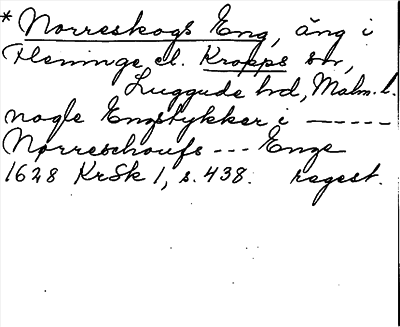 * Norreskogs Eng, äng i
Fleninge el. Kropps sn,
Luggude hd, Malm. l.
nogle Engstykker i ------
Nørreschoufs --- Enge
1628 KrSk 1, s. 438. regest.